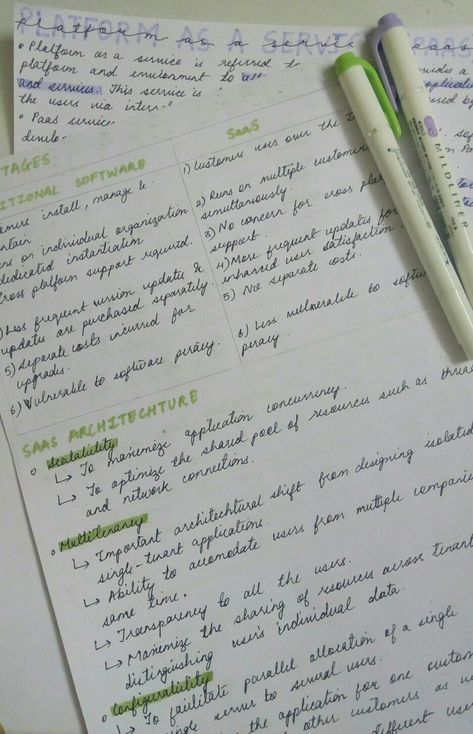 PLATFORM AS A SERVICE
platform as a service
• Platform as a service is referred to
platform and enviornment to
and services. This service is
the users via inter
• Paas service
develo
TAGES
ITIONAL SOFTWARE
install, manage &
on individual organization
dedicated instantiation
cross platform support required.
4) Less frequent version updates &
updates are purchased separately.
5) Separate costs incurred for
upgrades.
6) Vulnerable to software piracy.
SaaS
1) Customers uses over the
2) Runs on multiple customers
simultaneously.
3) No concern for cross plat
support.
4) More frequent updates for
enhanced user satisfaction.
5) No separate costs.
6) Less vulnerable to software
piracy
MILDLINER
SAAS ARCHITECHTURE
• Scalability
↳ To maximize application concurrency.
↳ To optimize the shared pool of resources such as threa
and network connections.
• Multitenancy
↳ Important architechtural shift from designing isolated
single-tenant applications.
↳ Ability to accomodate users from multiple companie
same time.
↳ Transparency to all the users.
↳ Maximize the sharing of resources across tenant
distinguishing user's individual data.
• Configurability
↳ To facilitate parallel allocation of a single
single server to several users.
the application for one custom
other customers as we
different user